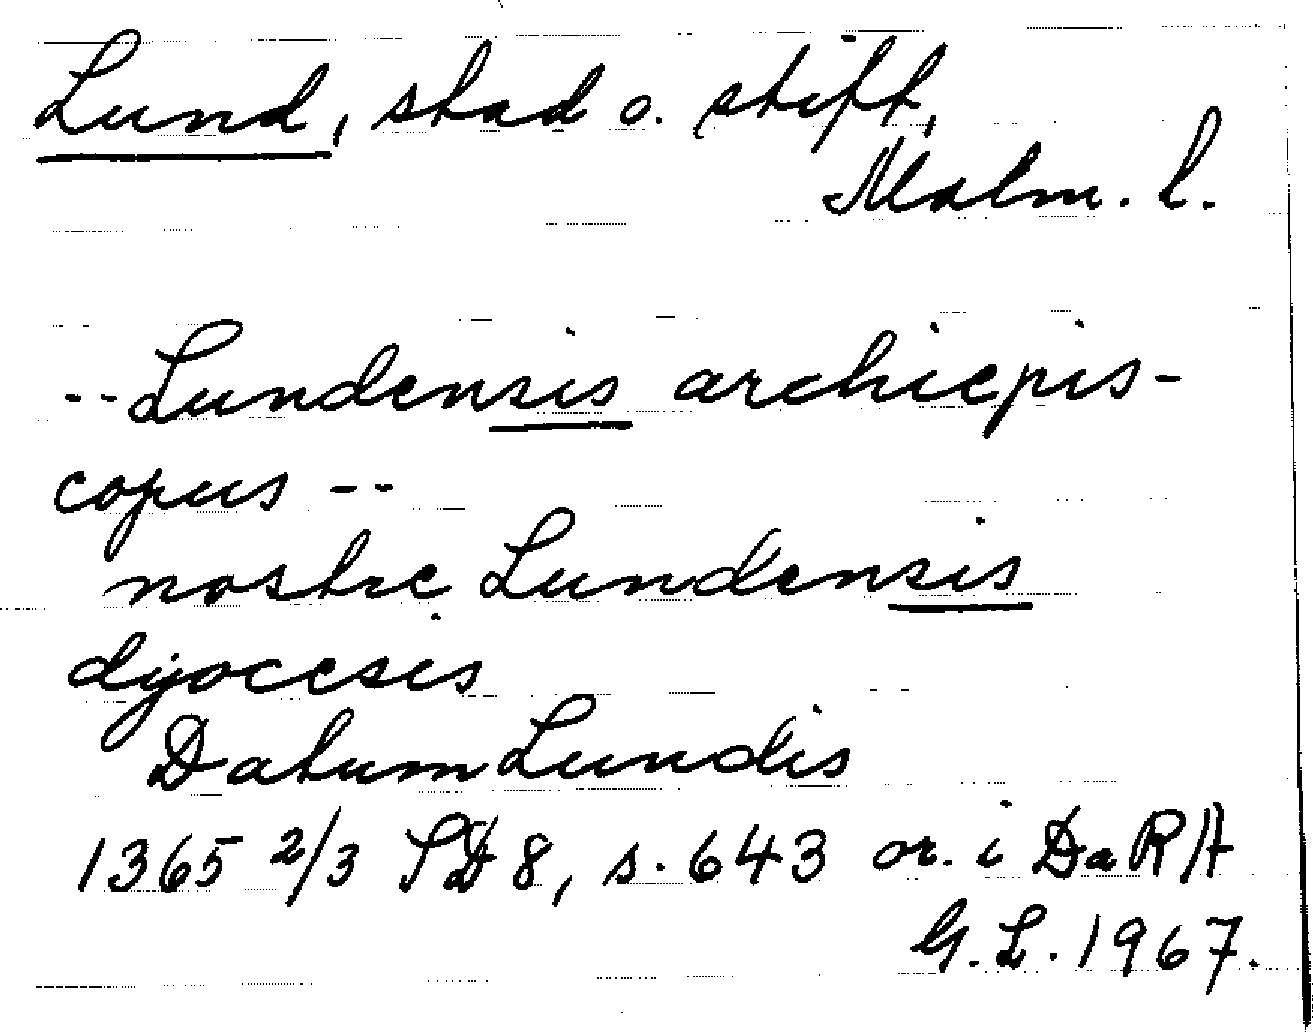 Lund, stad o. stift,
Malm. l.
--Lundensis archiepis-
copus --
nostre Lundensis
dyocesis
Datum Lundis
1365 2/3 SD 8, s. 643 or. i DaRA
G. L. 1967.